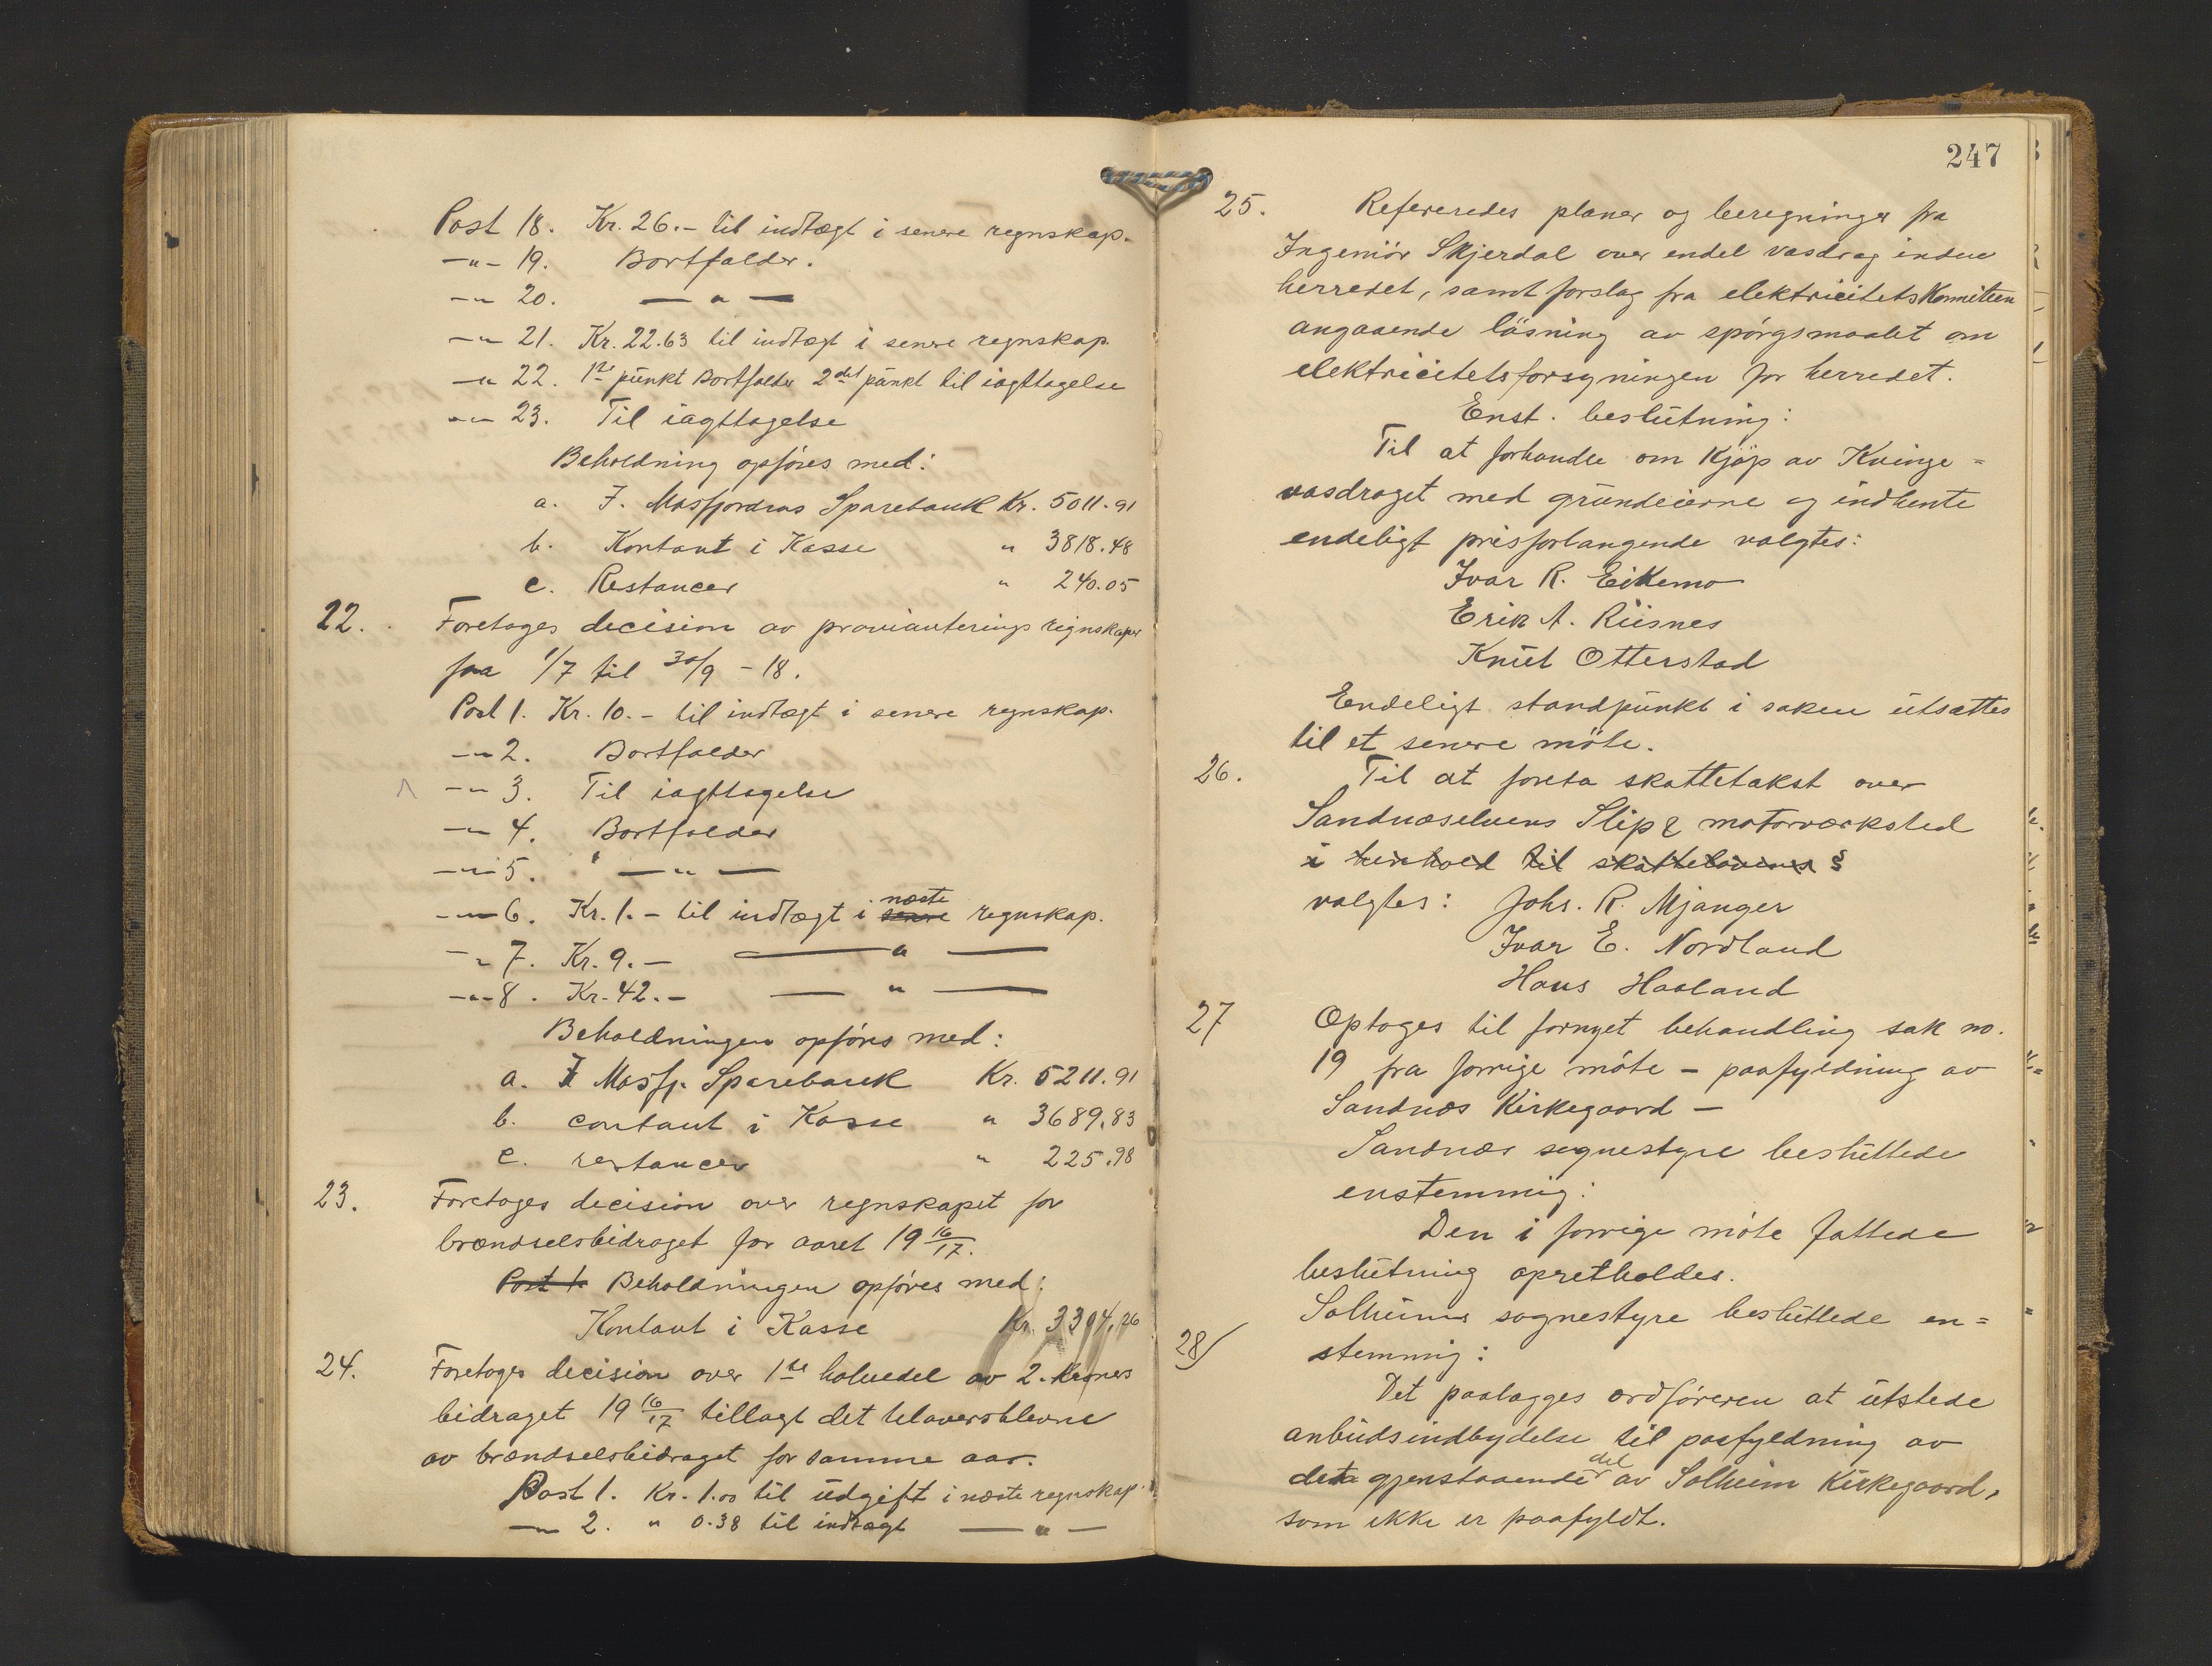 Post 18. Kr. 26.- til indtægt i senere regnskap.
-"- 19. Bortfalder.
-"- 20. -"-
-"- 21. Kr. 22.63 til indtægt i senere regnskap.
-"- 22. 1ste punkt Bortfalder 2det punkt til iagttagelse
-"- 23. Til iagttagelse
Beholdning opföres med:
a. I. Masfjordens Sparebank Kr. 5011.91
b. Kontant i Kasse " 3818.48
c. Restancer " 240.05
22. Foretoges decision av provianterings regnskaper
fra 1/7 til 30/9 - 18.
Post 1. Kr. 10.- til indtægt i senere regnskap.
-"- 2. Bortfalder
-"- 3. Til iagttagelse
-"- 4. Bortfalder
-"- 5. -"-
-"- 6. Kr. 1.- til indtægt i senere næste regnskap.
-"- 7. Kr. 9.- -"-
-"- 8. Kr. 42.- -"-
Beholdningen opföres med:
a. I Masfj. Sparebank Kr. 5211.91
b. contant i Kasse " 3689,83
c. restancer " 225.98
23. Foretoges decision over regnskapet for
brændselsbidraget for aaret 19 16/17.
Post 1. Beholdningen opföres med:
Kontant i Kasse Kr. 3394,26
24. Foretoges decision over 1ste halvedel av 2. Kroners
bidraget 19 16/17 tillagt det
av brændselsbidraget for samme aar.
Post 1. Kr. 1.00 til udgift i næste regnskap.
-"- 2. " 0.38 til indtægt -"-
247
25. Refereredes planer og beregninger fra
Ingeniör Skjerdal over endel vasdrag inden
herredet, samt forslag fra elektricitetsKomiteen
angaaende läsning av spörgsmaalet om
elektricitetsforsyningen for herredet.
Enst. beslutning:
Til at forhandle om Kjöp av Kvinge=
vasdraget med grundeierne og indhente
endeligt prisforlangende valgtes:
Ivar R. Eikemo
Erik A. Riisnes
Knut Otterstad
Endeligt standpunkt i saken utsættes
til et senere möte.
26. Til at foreta skattetakst over
Sandnæselvens Slip & motorværksted
i henhold til skattelovens §
valgtes: Johs. R. Mjanger
Ivar E. Nordland
Hans Haaland
27 Optoges til fornyet behandling sak no.
19 fra forrige möte - paafyldning av
Sandnæs Kirkegaard -
Sandnæs sognestyre besluttede
enstemmig:
Den i forrige möte fattede
beslutning opretholdes.
Solheims sognestyre besluttede en=
28/ stemmig:
Det paalægges ordföreren at utstede
anbudsindbydelse til paafyldning av
deta gjenstaaende del av Solheim Kirkegaard,
som ikke er paafyldt.